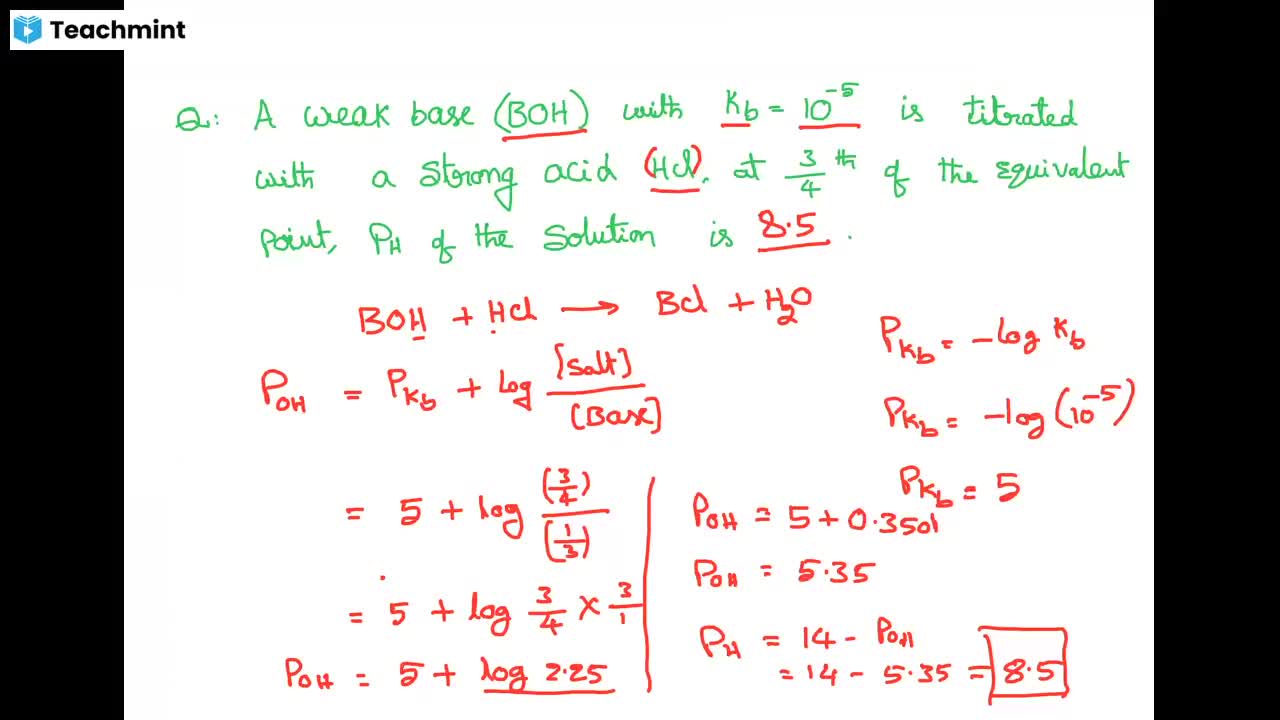 Teachmint
Q: A weak base (BOH) with Kb = 10⁻⁵ is titrated
with a strong acid (HCl), at 3/4 th of the equivalent
point, PH of the solution is 8.5 .
BOH + HCl ⟶ BCl + H₂O
POH = PKb + log [Salt]/[Base]
= 5 + log (3/4)/(1/3)
= 5 + log 3/4 × 3/1
POH = 5 + log 2.25
PKb = -log Kb
PKb = -log (10⁻⁵)
PKb = 5
POH = 5 + 0.3501
POH = 5.35
PH = 14 - POH
= 14 - 5.35 = 8.5